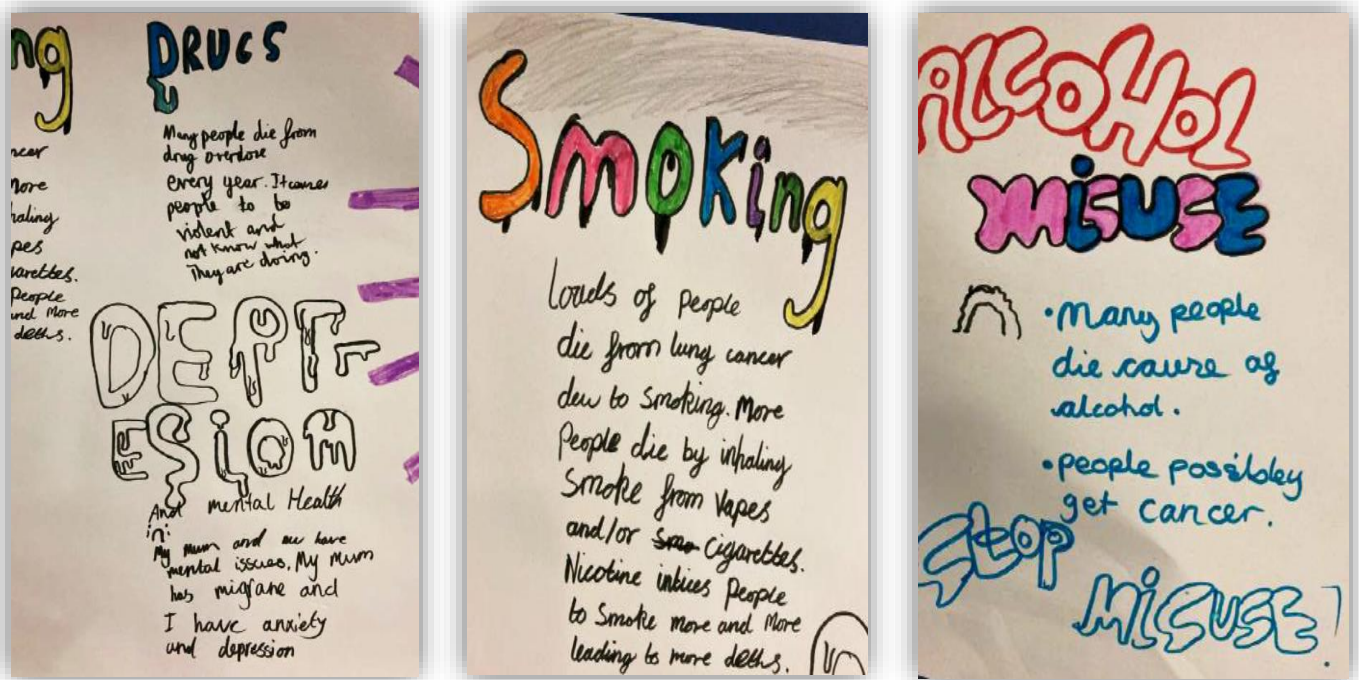 ng
ncer
More
haling
pes
garettes.
People
and More
deths.
DRUGS
Many people die from
drug overdose
every year. It causes
people to be
violent and
not know what
They are doing.
DEPR-
ESION
And mental Health
My mum and me have
mental issues. My mum
has migrane and
I have anxiety
and depression
Smoking
loads of people
die from lung cancer
dew to smoking. More
People die by inhaling
Smoke from Vapes
and/or smo cigarettes.
Nicotine intices People
to Smoke more and More
leading to more deths.
ALCOHOL
MISUSE
• Many people
die cause of
alcohol.
• people possibley
get cancer.
Stop
MISUSE!